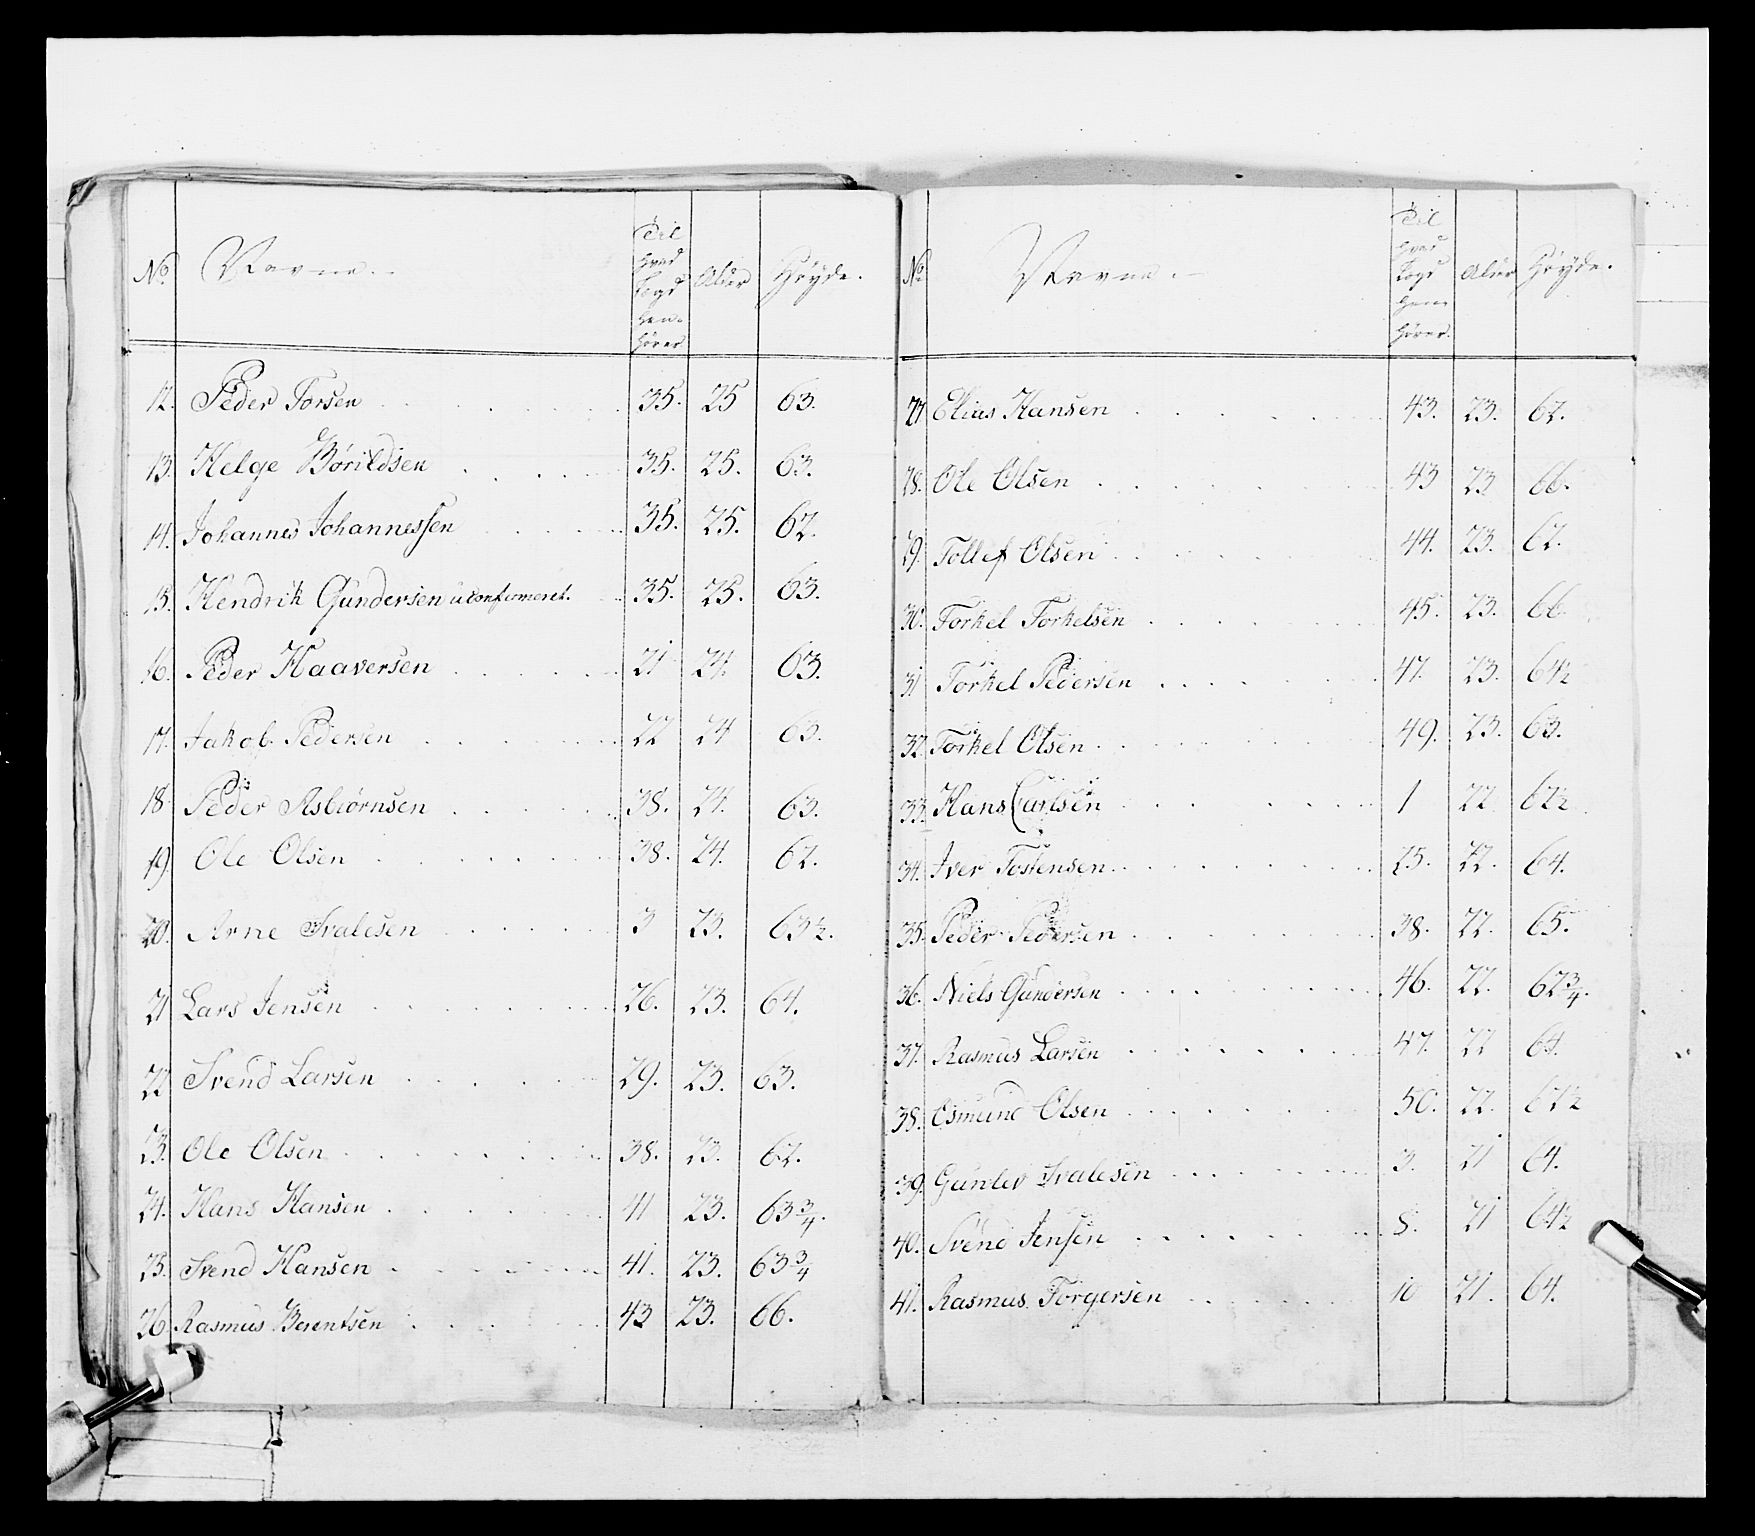 No. Navne. Til hvad Lægd hen-hører Alder Høyde.
12. Peder Torsen 35. 25 63.
13. Helge Børildsen 35. 25. 63.
14. Johannes Johannessen 35. 25. 62.
15. Hendrik Gundersen uconfirmeret. 35. 25. 63.
16. Peder Haaversen 21 24. 63.
17. Jakob Pedersen 22 24 63.
18 Peder Asbiørnsen 38. 24. 63.
19. Ole Olsen 38. 24. 62.
20. Arne Svalesen 3 23. 63½.
21 Lars Jensen 26. 23. 64.
22 Svend Larsen 29. 23. 63.
23. Ole Olsen 38. 23. 62.
24. Hans Hansen 41 23. 63¾.
25. Svend Hansen 41. 23. 63¾
26 Rasmus Berentsen 43 23. 66.
No. Navne. Til hvad Lægd hen hører. Alder Høyde.
27 Elias Hansen 43. 23. 62.
28. Ole Olsen 43 23 66.
29. Tollef Olsen 44. 23. 62.
30. Torkel Torkelsen 45. 23. 66.
31 Torkel Pedersen 47. 23. 64½
32 Torkel Olsen 49. 23. 63.
33. Hans Carlsen 1 22 62½
34. Iver Tostensen 25. 22. 64.
35. Peder Pedersen 38. 22. 65.
36. Niels Gundersen 46. 22. 62¾.
37. Rasmus Larsen 47. 22 64.
38. Osmund Olsen 50. 22. 62½
39. Gunlev Svalesen 3. 21 64.
40. Svend Jensen 8. 21 64½
41. Rasmus Torgersen 10 21. 64.